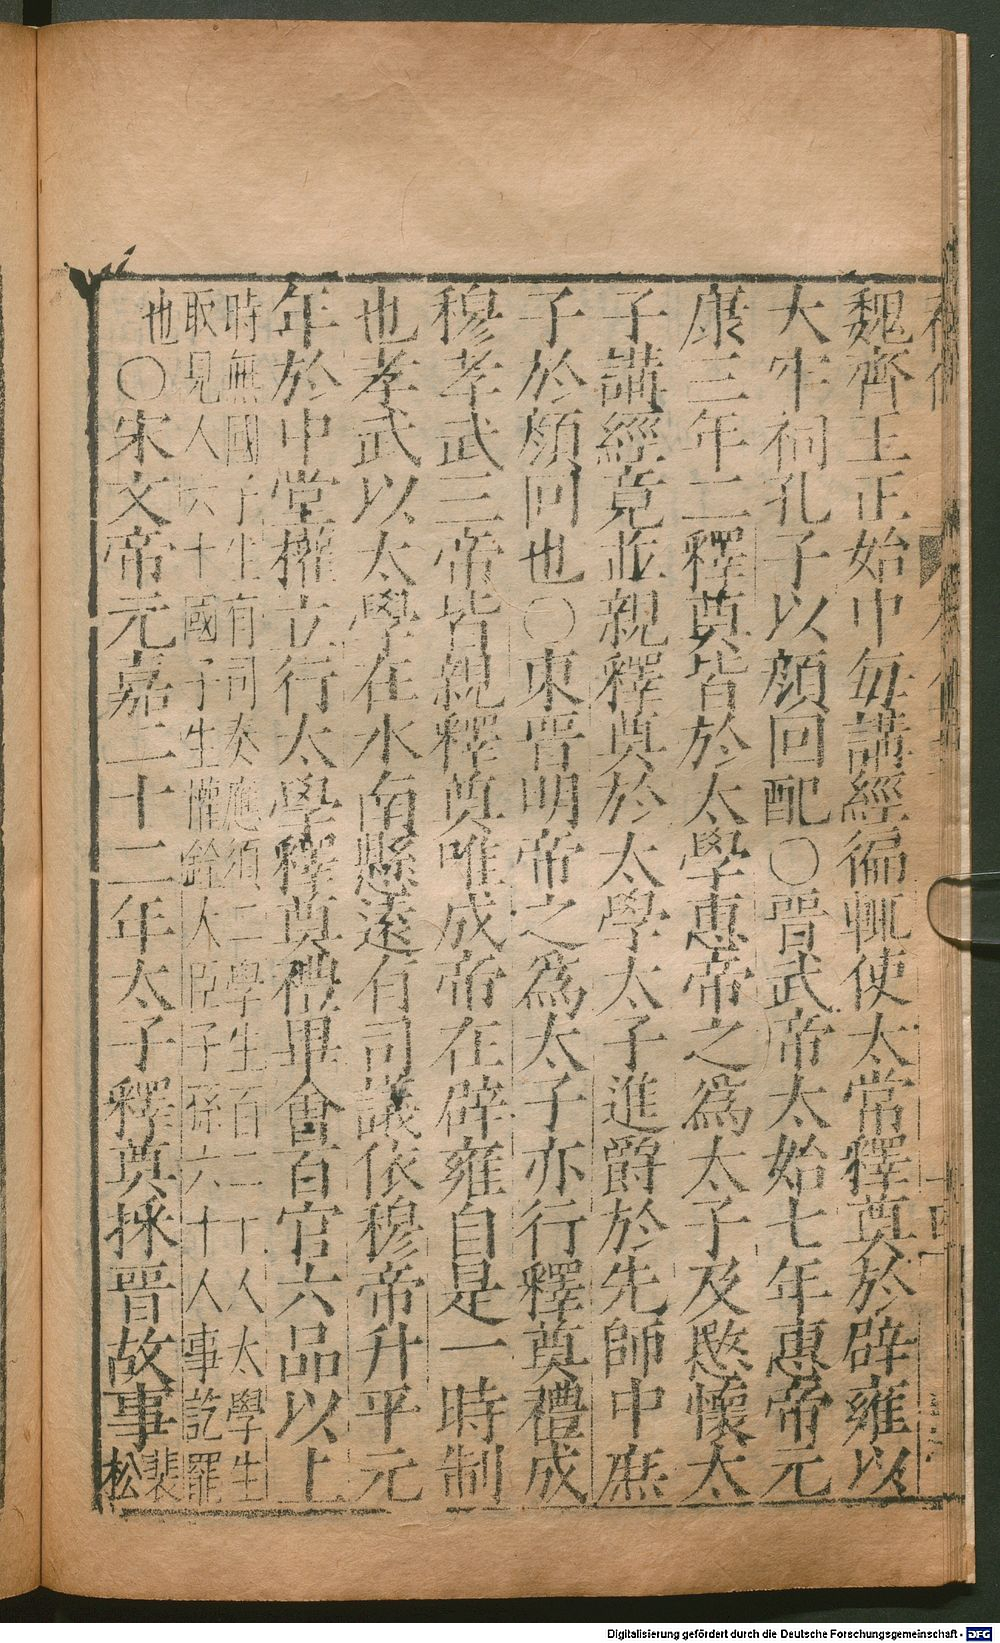 魏齊王正始中每講經徧輒使太常釋奠於辟雍以
大牢祠孔子以顔回配〇晉武帝太始七年惠帝元
康三年二釋奠皆於太學惠帝之爲太子及愍懷太
子講經竟並親釋奠於太學太子進爵於先師中庶
子於顔回也〇東晉明帝之爲太子亦行釋奠禮成
穆孝武三帝皆親釋奠唯成帝在辟雍自是一時制
也孝武以太學在水南懸遠有司議依穆帝升平元
年於中堂權立行太學釋奠禮畢會百官六品以上
時無國子生有司奏應須二學生百二十人太學生
取見人六十國子生權銓大臣子孫六十人事訖罷
也〇宋文帝元嘉二十二年太子釋奠採晉故事裴
松
Digitalisierung gefördert durch die Deutsche Forschungsgemeinschaft - DFG